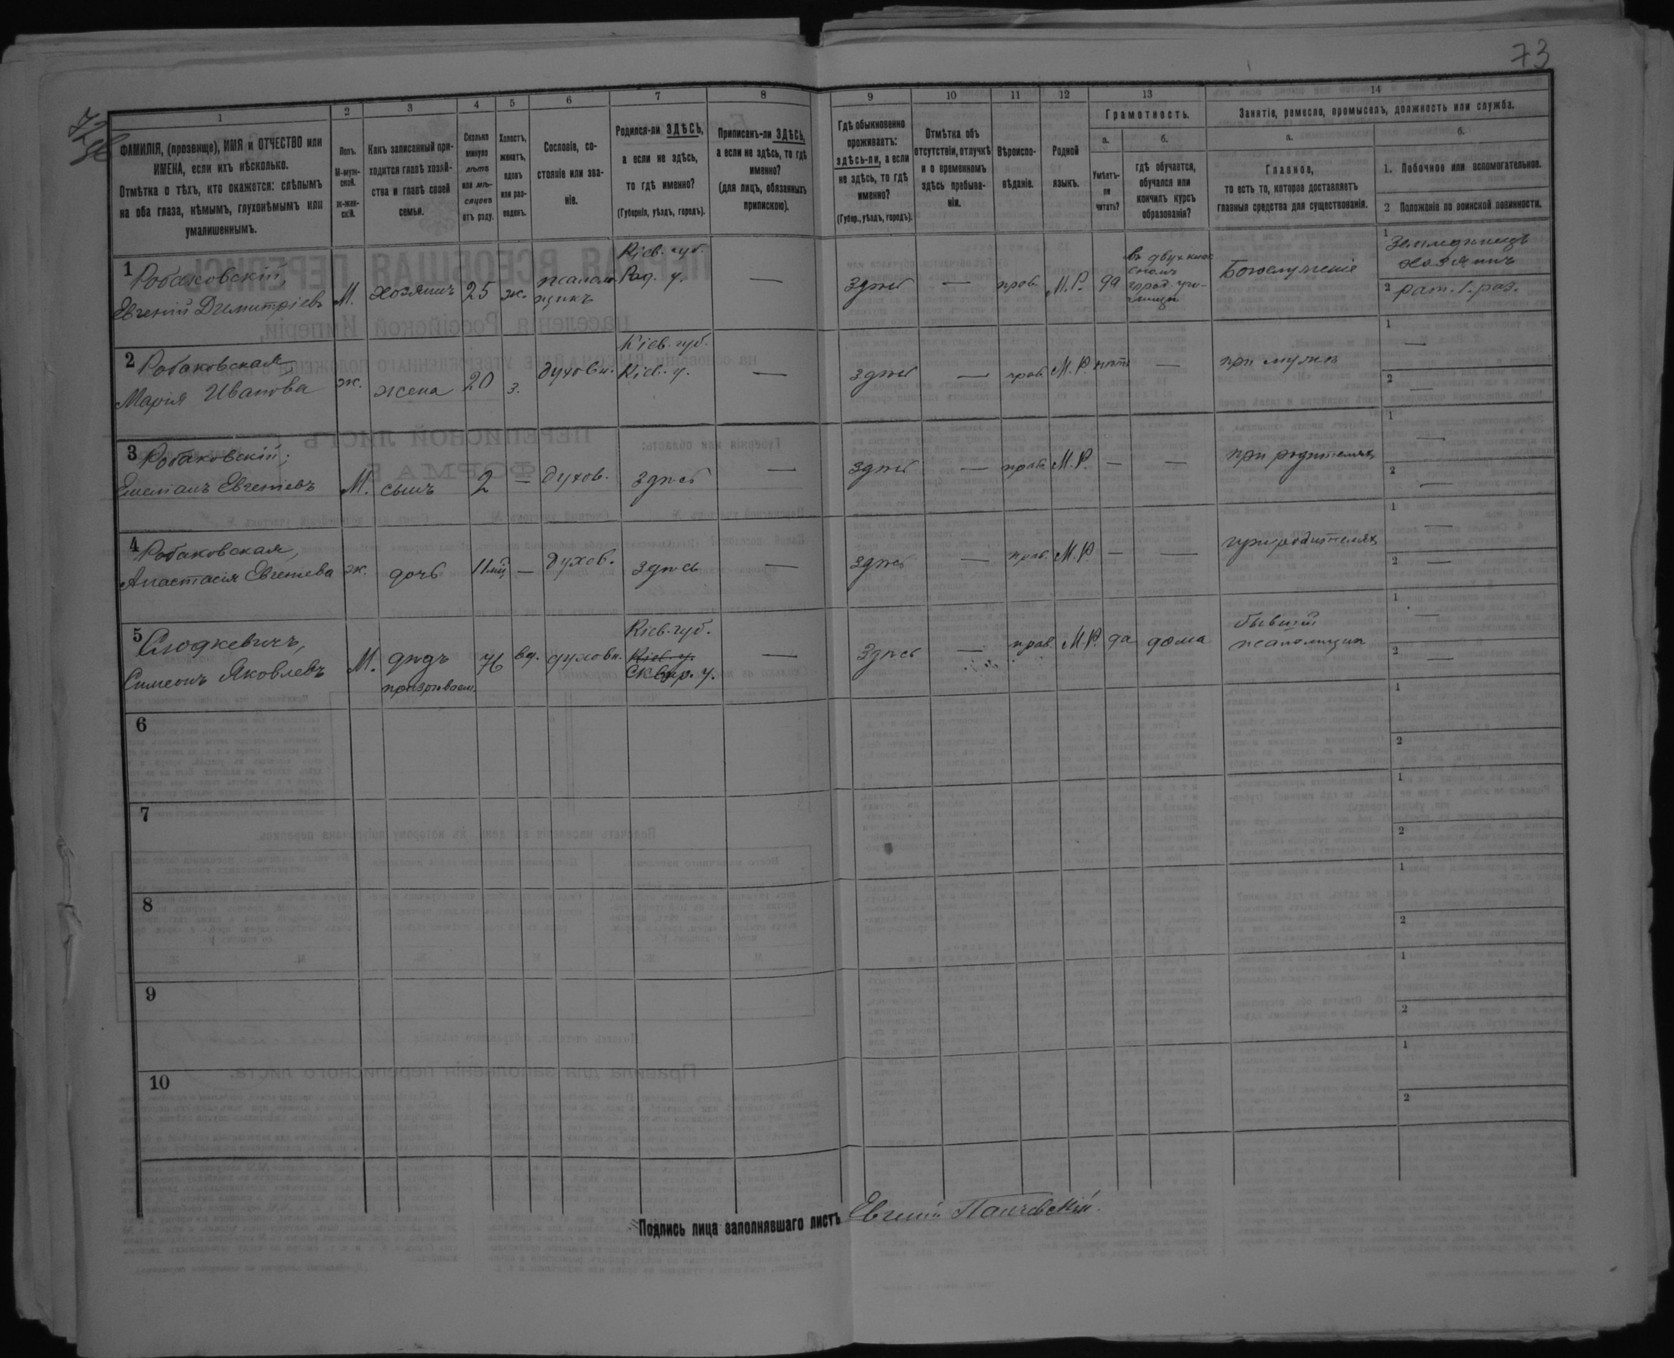 73
1
2
3
4
5
6
7
8
9
10
11
12
13
14
ФАМИЛІЯ, (прозвище), ИМЯ и ОТЧЕСТВО или
ИМЕНА, если ихъ нѣсколько.
Отмѣтка о тѣхъ, кто окажется: слѣпымъ
на оба глаза, нѣмымъ, глухонѣмымъ или
умалишеннымъ.
Полъ.
М-муж-
ской.
Ж-жен-
скій.
Какъ записанный при-
ходится главѣ хозяй-
ства и главѣ своей
семьи.
Сколько
минуло
лѣтъ
или мѣ-
сяцевъ
отъ роду.
Холостъ,
женатъ,
вдовъ
или раз-
веденъ.
Сословіе, со-
стояніе или зва-
ніе.
Родился-ли ЗДѢСЬ,
а если не здѣсь,
то гдѣ именно?
(Губернія, уѣздъ, городъ).
Приписанъ-ли ЗДѢСЬ,
а если не здѣсь, то гдѣ
именно?
(для лицъ, обязанныхъ
припискою).
Гдѣ обыкновенно
проживаетъ:
здѣсь-ли, а если
не здѣсь, то гдѣ
именно?
(Губер., уѣздъ, городъ).
Отмѣтка объ
отсутствіи, отлучкѣ
и о временномъ
здѣсь пребыва-
ніи.
Вѣроиспо-
вѣданіе.
Родной
языкъ.
Грамотность.
а.
Умѣетъ-
ли
читать?
б.
гдѣ обучается,
обучался или
кончилъ курсъ
образованія?
Занятіе, ремесло, промыселъ, должность или служба.
а.
Главное,
то есть то, которое доставляетъ
главныя средства для существованія.
б.
1. Побочное или вспомогательное.
2 Положеніе по воинской повинности.
1 Робаковскій,
Евгеній Димитріевъ
М. хозяинъ 25 ж.
Кіев. губ.
Рад. у. —
здѣсь — прав. М.Р. да
въ двухклас
городс. учи-
лищѣ
Богослуженіе
1 Земледѣлецъ
хозяинъ
2 рат. 1. раз.
2 Робаковская
Марія Иванова
ж. жена 20 з. духовн.
Кіев. губ.
Кіев. у. —
здѣсь — прав. М.Р. нѣтъ —
при мужѣ
1 —
2 —
3 Робаковскій,
Евгеніевъ
М. сынъ 2 — духов. здѣсь —
здѣсь — прав. М.Р. — —
при родителяхъ
1 —
2 —
4 Робаковская,
Анастасія Евгеніева
ж. дочь 11 мѣ — духов. здѣсь —
здѣсь — прав. М.Р. — —
при родителяхъ
1 —
2 —
5 Слюдкевичъ,
Симеонъ Яковлевъ
М. дѣдъ
призрѣваем.
76 вд. духовн.
Кіев. губ.
Кіев. у.
Сквир. у. —
здѣсь — прав. М.Р. да дома
бывшій
псаломщикъ
1 —
2 —
6
1
2
7
1
2
8
1
2
9
1
2
10
1
2
Подпись лица заполнявшаго листъ Евгеній